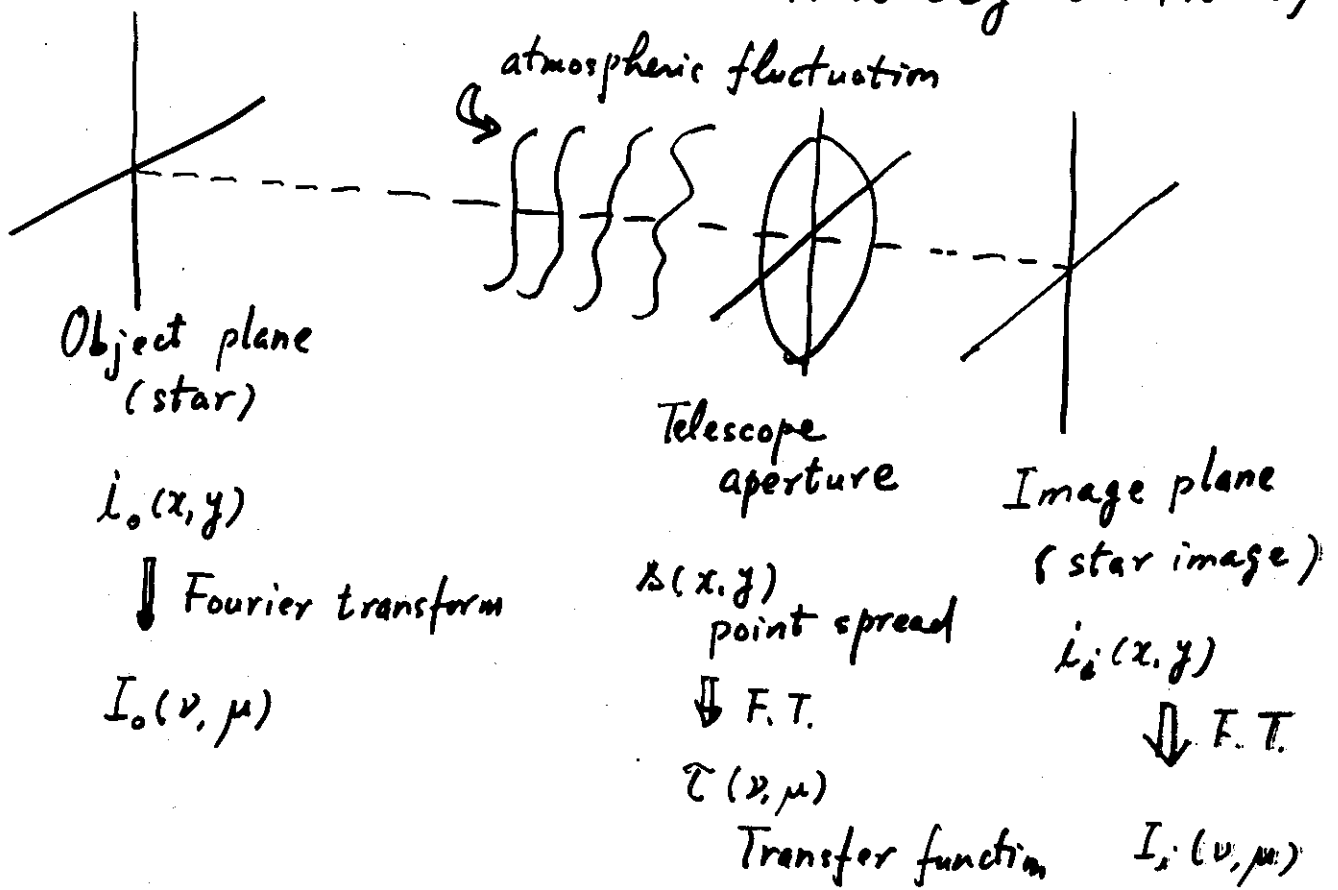 atmospheric fluctuation
Object plane
(star)
i₀(x,y)
Fourier transform
I₀(ν, μ)
Telescope
aperture
s(x,y)
point spread
F.T.
τ(ν,μ)
Transfer function
Image plane
(star image)
iᵢ(x,y)
F.T.
Iᵢ(ν,μ)